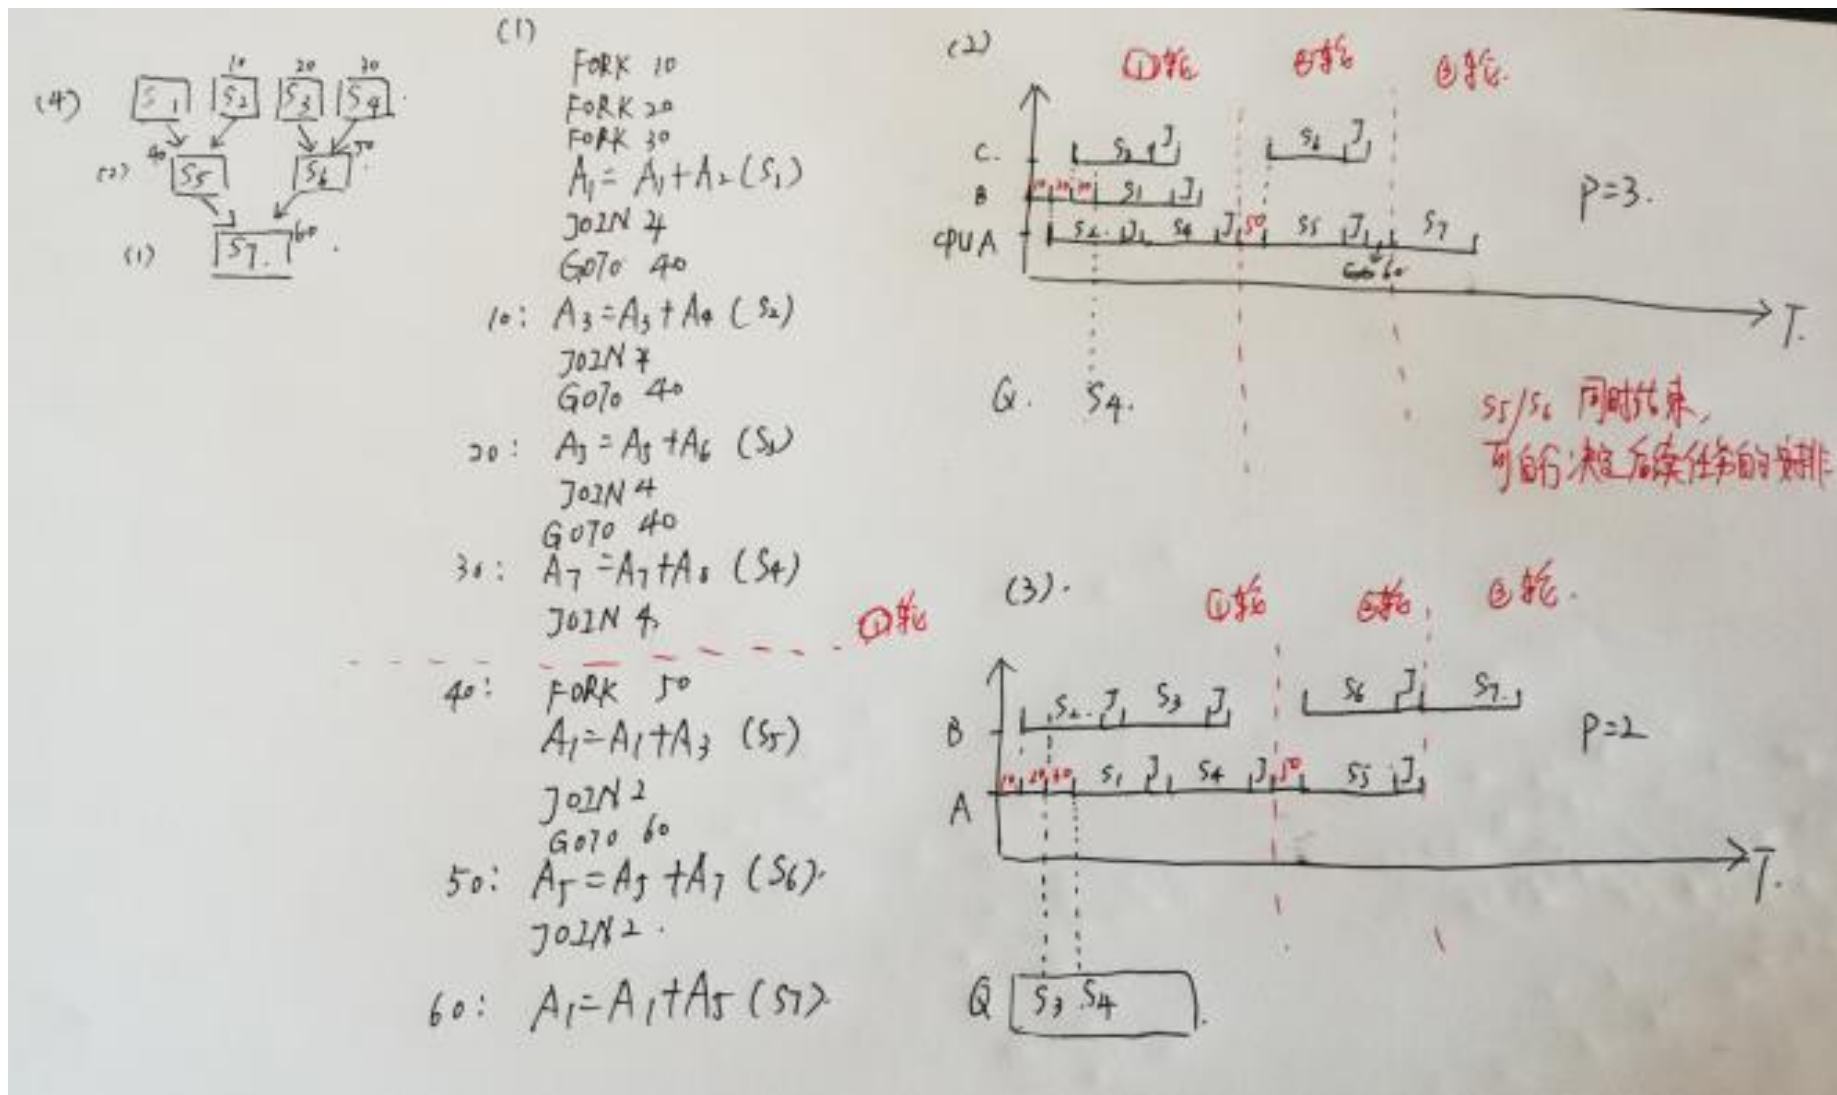 (4)
S1
10
S2
20
S3
30
S4
(2)
40
S5
S6
50
(1)
S7.
60
(1)
FORK 10
FORK 20
FORK 30
A1 = A1+A2 (S1)
JOIN 4
GOTO 40
10: A3=A3+A4 (S2)
JOIN 4
GOTO 40
20: A5 = A5+A6 (S3)
JOIN 4
GOTO 40
30: A7 =A7+A8 (S4)
JOIN 4
①轮
40: FORK 50
A1=A1+A3 (S5)
JOIN 2
GOTO 60
50: A5=A5+A7 (S6).
JOIN 2.
60: A1=A1+A5 (S7).
(2)
①轮 ②轮 ③轮.
C. S3 J S6 J
B 10 20 30 S1 J
CPU A S2. J. S4 J 50 S5 J S7
60
P=3.
T.
Q. S4.
S5/S6 同时结束,
可自行决定后续任务的安排
(3).
①轮 ②轮 ③轮.
B S2. J S3 J S6 J S7.
A 10 20 30 S1 J S4 J 50 S5 J
P=2
T.
Q S3 S4